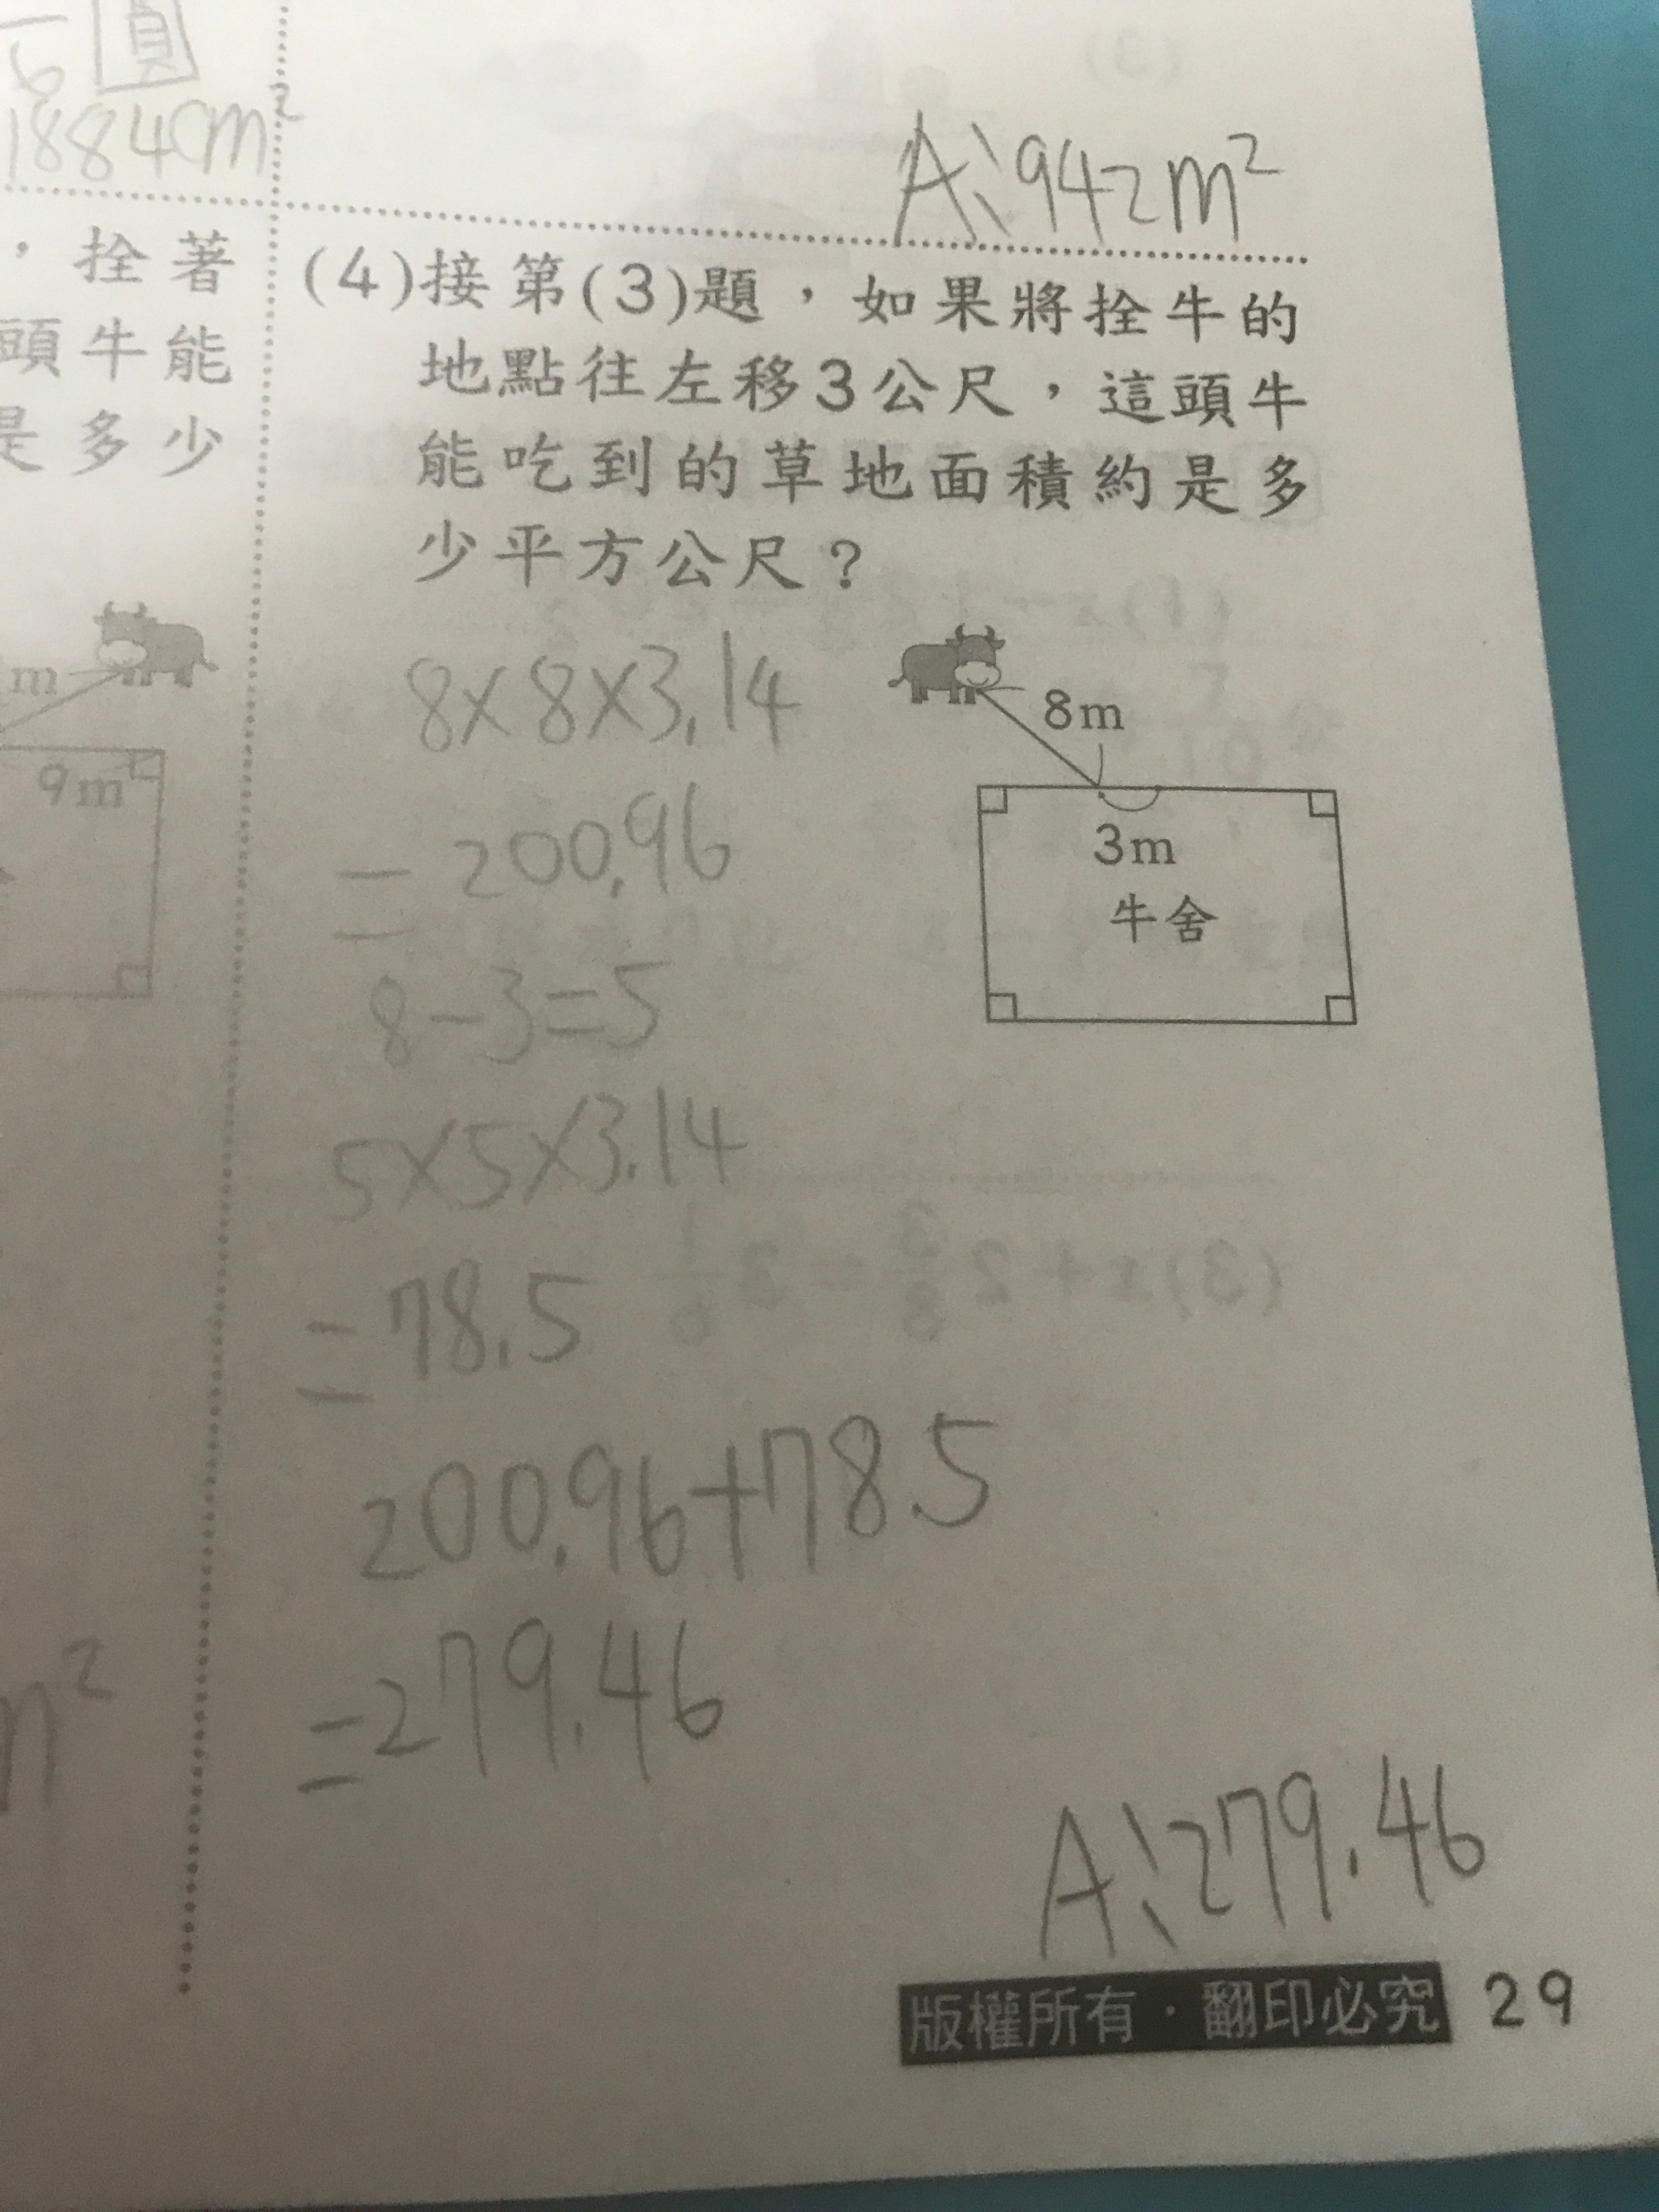 6 圓
1884cm²
A:942m²
,拴著
頭牛能
是多少
m
9m
(4)接第(3)題,如果將拴牛的
地點往左移3公尺,這頭牛
能吃到的草地面積約是多
少平方公尺?
8m
3m
牛舍
8×8×3.14
=200.96
8-3=5
5×5×3.14
=78.5
200.96+78.5
=279.46
m²
A:279.46
版權所有·翻印必究 29